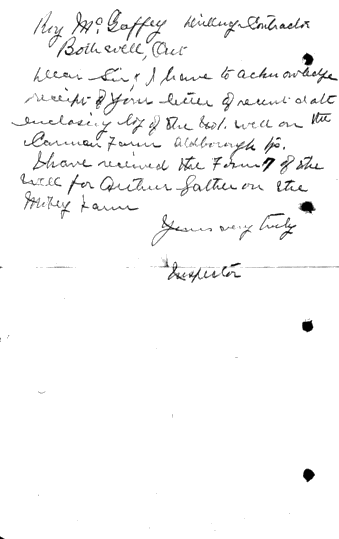 Roy McGaffey Drilling Contractor
Bothwell, Ont
Dear Sir, I have to acknowledge
receipt of your letter of recent date
enclosing log of the No 1. well on the
Carman Farm Aldborough Tp.
I have received the Form 7 of the
well for Arthur Gather on the
Farm
Yours very truly
Inspector